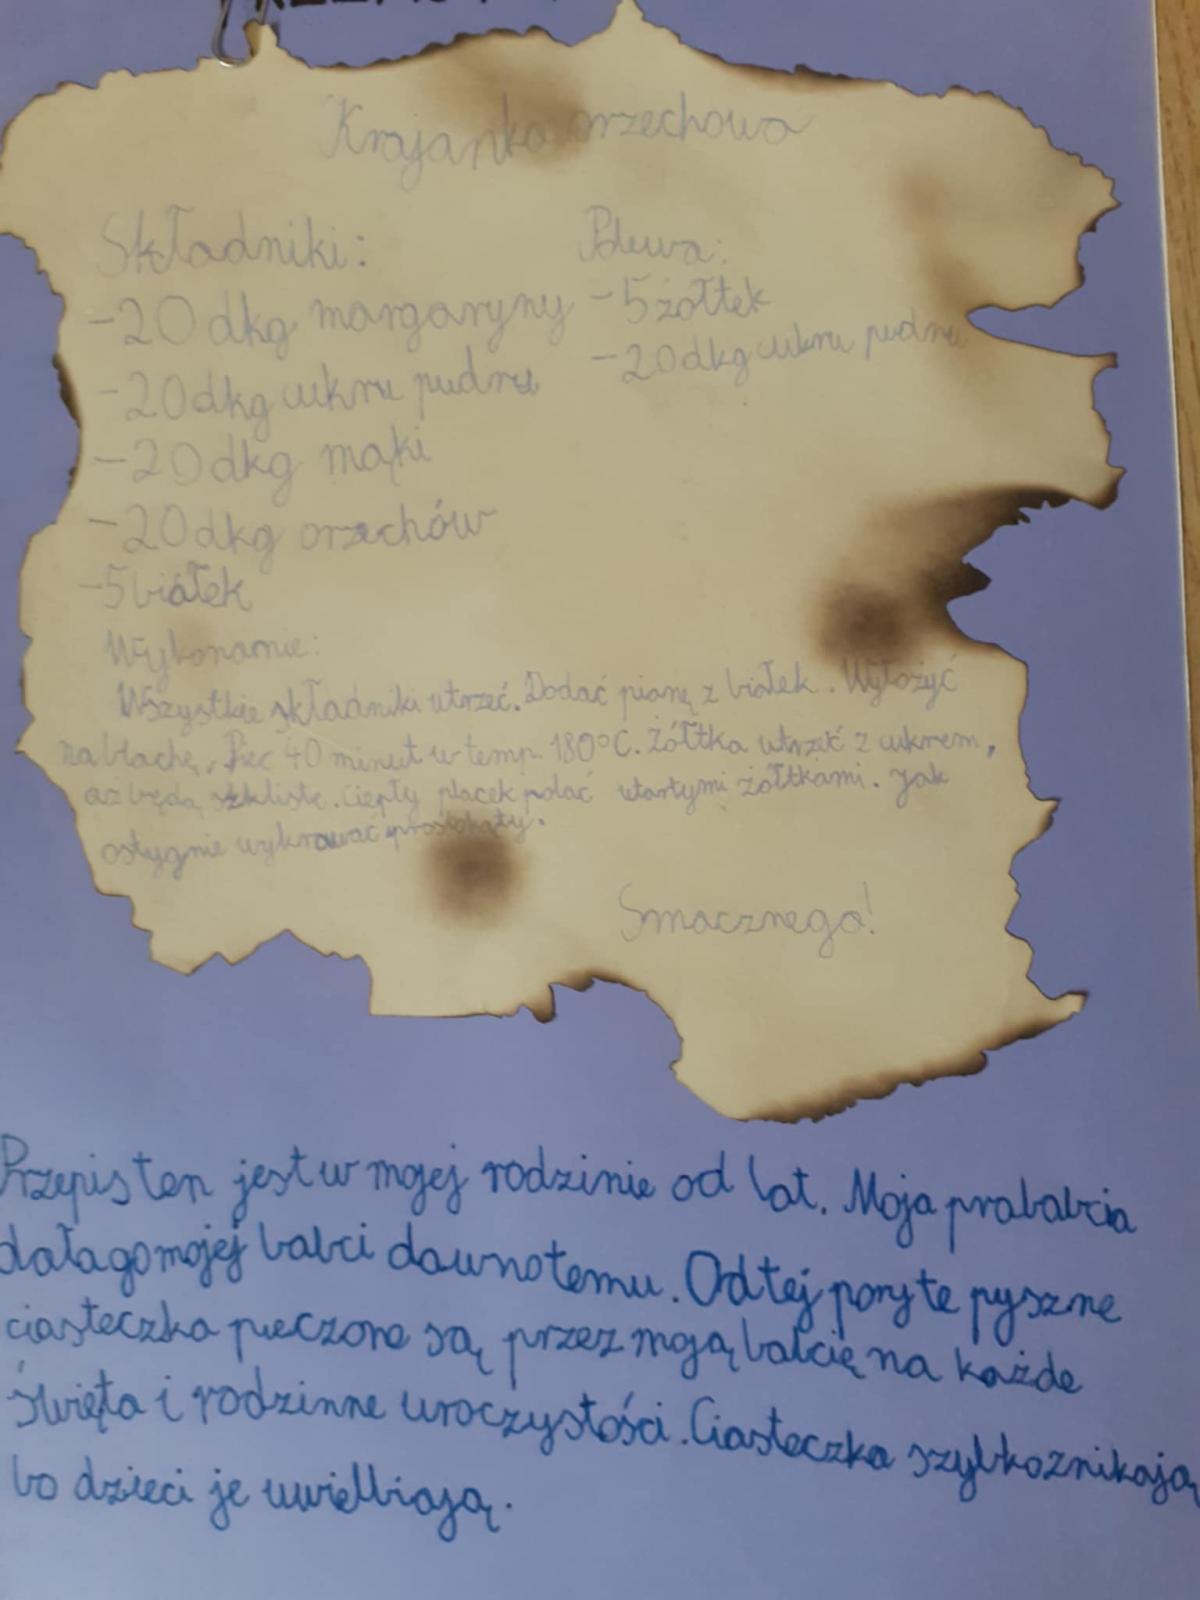 Krajanka orzechowa
Składniki:
-20 dkg margaryny
-20 dkg cukru pudru
-20 dkg mąki
-20 dkg orzechów
-5 białek
Polewa:
-5 żółtek
-20 dkg cukru pudru
Wykonanie:
Wszystkie składniki utrzeć. Dodać pianę z białek. Wyłożyć
na blachę. Piec 40 minut w temp. 180°C. Żółtka utrzeć z cukrem,
aż będą szkliste. Ciepły placek polać utartymi żółtkami. Jak
ostygnie wykrawać prostokąty.
Smacznego!
Przepis ten jest w mojej rodzinie od lat. Moja prababcia
dała go mojej babci dawno temu. Od tej pory te pyszne
ciasteczka pieczone są przez moją babcię na każde
święta i rodzinne uroczystości. Ciasteczka szybko znikają
bo dzieci je uwielbiają.